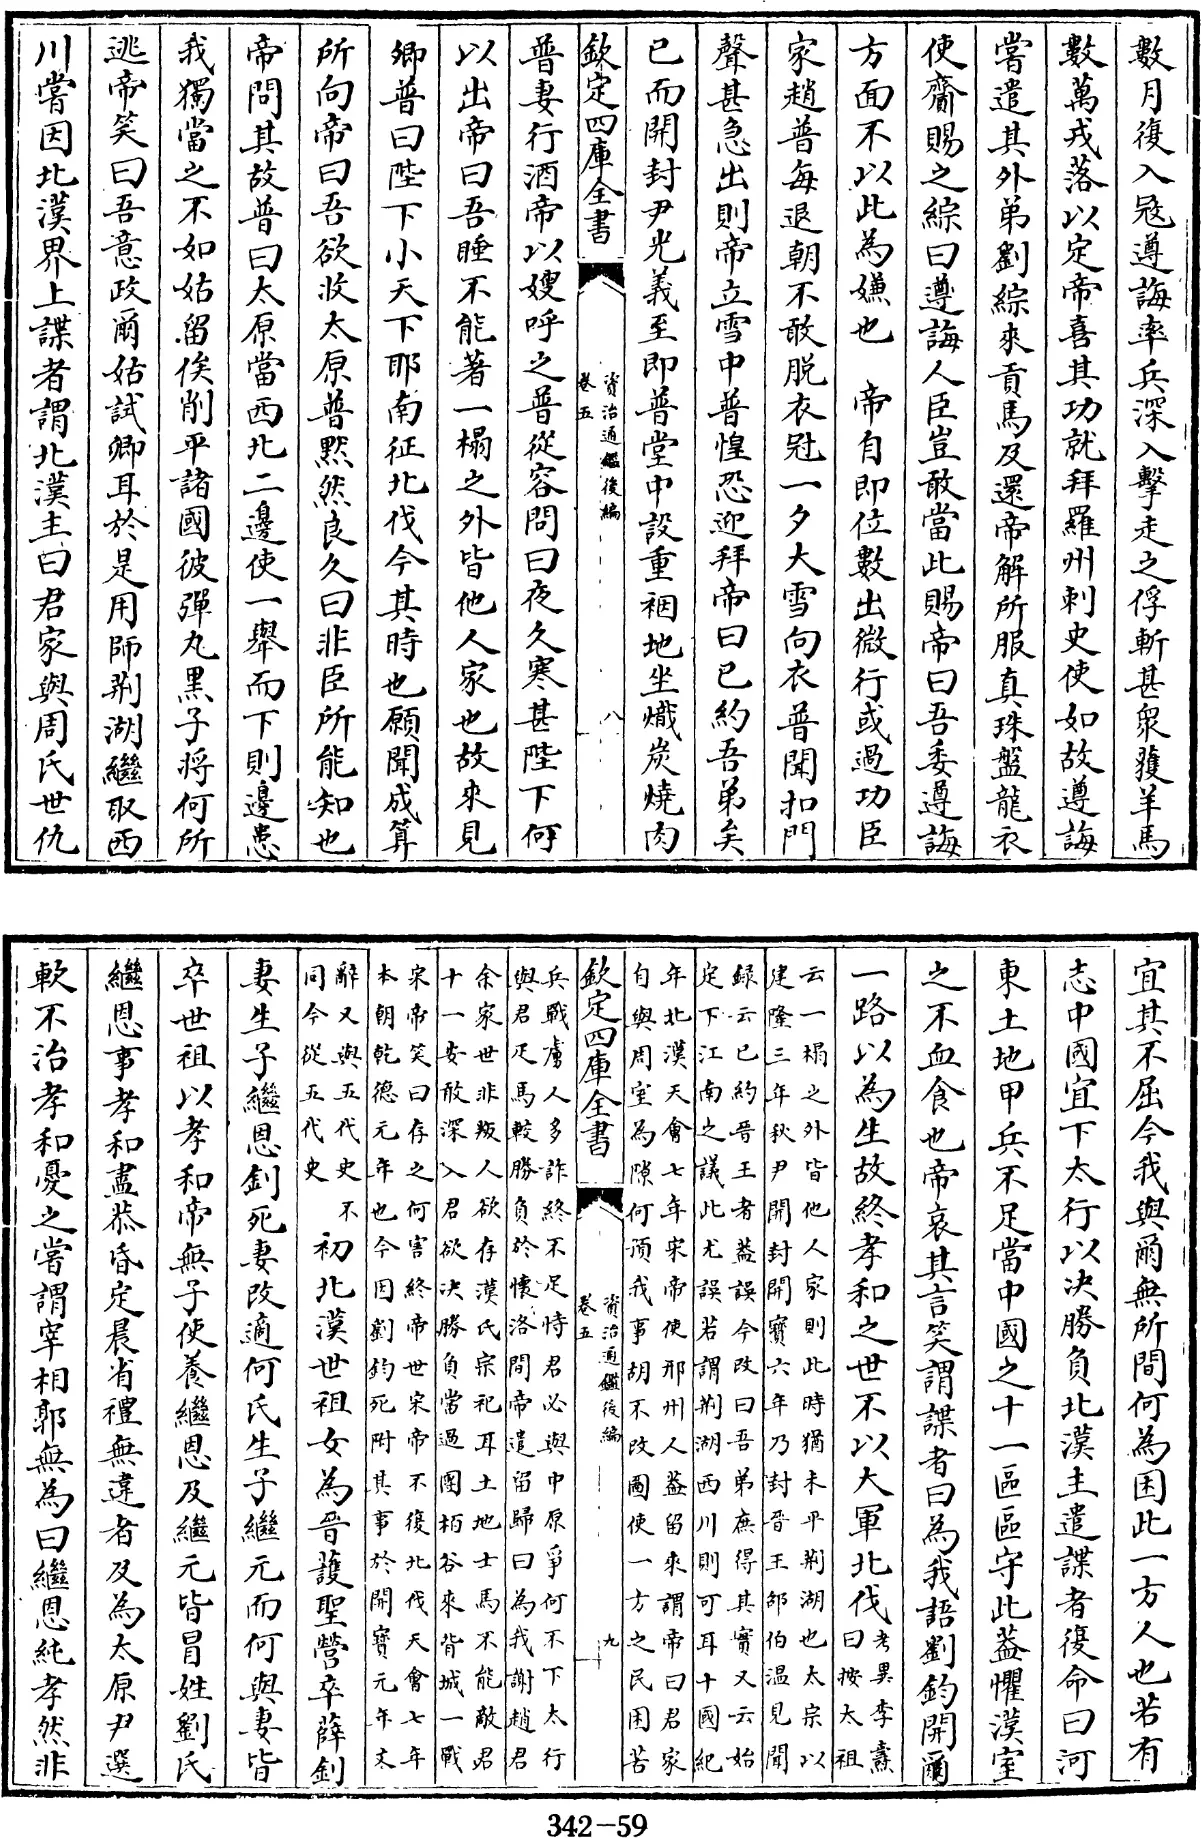 數月復入寇遵誨率兵深入擊走之俘斬甚衆獲羊馬
數萬戎落以定帝喜其功就拜羅州刺史使如故遵誨
嘗遣其外弟劉綜來貢馬及還帝解所服真珠盤龍衣
使齎賜之綜曰遵誨人臣豈敢當此賜帝曰吾委遵誨
方面不以此為嫌也　帝自即位數出微行或過功臣
家趙普每退朝不敢脱衣冠一夕大雪向衣普聞扣門
聲甚急出則帝立雪中普惶恐迎拜帝曰已約吾弟矣
已而開封尹光義至即普堂中設重裀地坐熾炭燒肉
欽定四庫全書
資治通鑑後編
卷五
八
普妻行酒帝以嫂呼之普從容問曰夜久寒甚陛下何
以出帝曰吾睡不能著一榻之外皆他人家也故來見
卿普曰陛下小天下耶南征北伐今其時也願聞成算
所向帝曰吾欲收太原普黙然良久曰非臣所能知也
帝問其故普曰太原當西北二邊使一舉而下則邊患
我獨當之不如姑留俟削平諸國彼彈丸黒子將何所
逃帝笑曰吾意政爾姑試卿耳於是用師荆湖繼取西
川嘗因北漢界上諜者謂北漢主曰君家與周氏世仇
宜其不屈今我與爾無所間何為困此一方人也若有
志中國宜下太行以决勝負北漢主遣諜者復命曰河
東土地甲兵不足當中國之十一區區守此葢懼漢室
之不血食也帝哀其言笑謂諜者曰為我語劉鈞開爾
一路以為生故終孝和之世不以大軍北伐
考異李燾
曰按太祖
云一榻之外皆他人家則此時猶未平荆湖也太宗以
建隆三年秋尹開封開寶六年乃封晉王邵伯温見聞
録云已約晉王者葢誤今改曰吾弟庶得其實又云始
定下江南之議此尤誤若謂荆湖西川則可耳十國紀
年北漢天會七年宋帝使邢州人葢留來謂帝曰君家
自與周室為隙何預我事胡不改圖使一方之民困苦
欽定四庫全書
資治通鑑後編
卷五
九
兵戰虜人多詐終不足恃君必與中原爭何不下太行
與君疋馬較勝負於懷洛間帝遣留歸曰為我謝趙君
余家世非叛人欲存漢氏宗祀耳土地士馬不能敵君
十一安敢深入君欲决勝負當過團柏谷來背城一戰
宋帝笑曰存之何害終帝世宋帝不復北伐天會七年
本朝乾德元年也今因劉鈞死附其事於開寶元年文
辭又與五代史不
同今從五代史
初北漢世祖女為晉護聖營卒薛釗
妻生子繼恩釗死妻改適何氏生子繼元而何與妻皆
卒世祖以孝和帝無子使養繼恩及繼元皆冒姓劉氏
繼恩事孝和盡恭昏定晨省禮無違者及為太原尹選
軟不治孝和憂之嘗謂宰相郭無為曰繼恩純孝然非
342-59